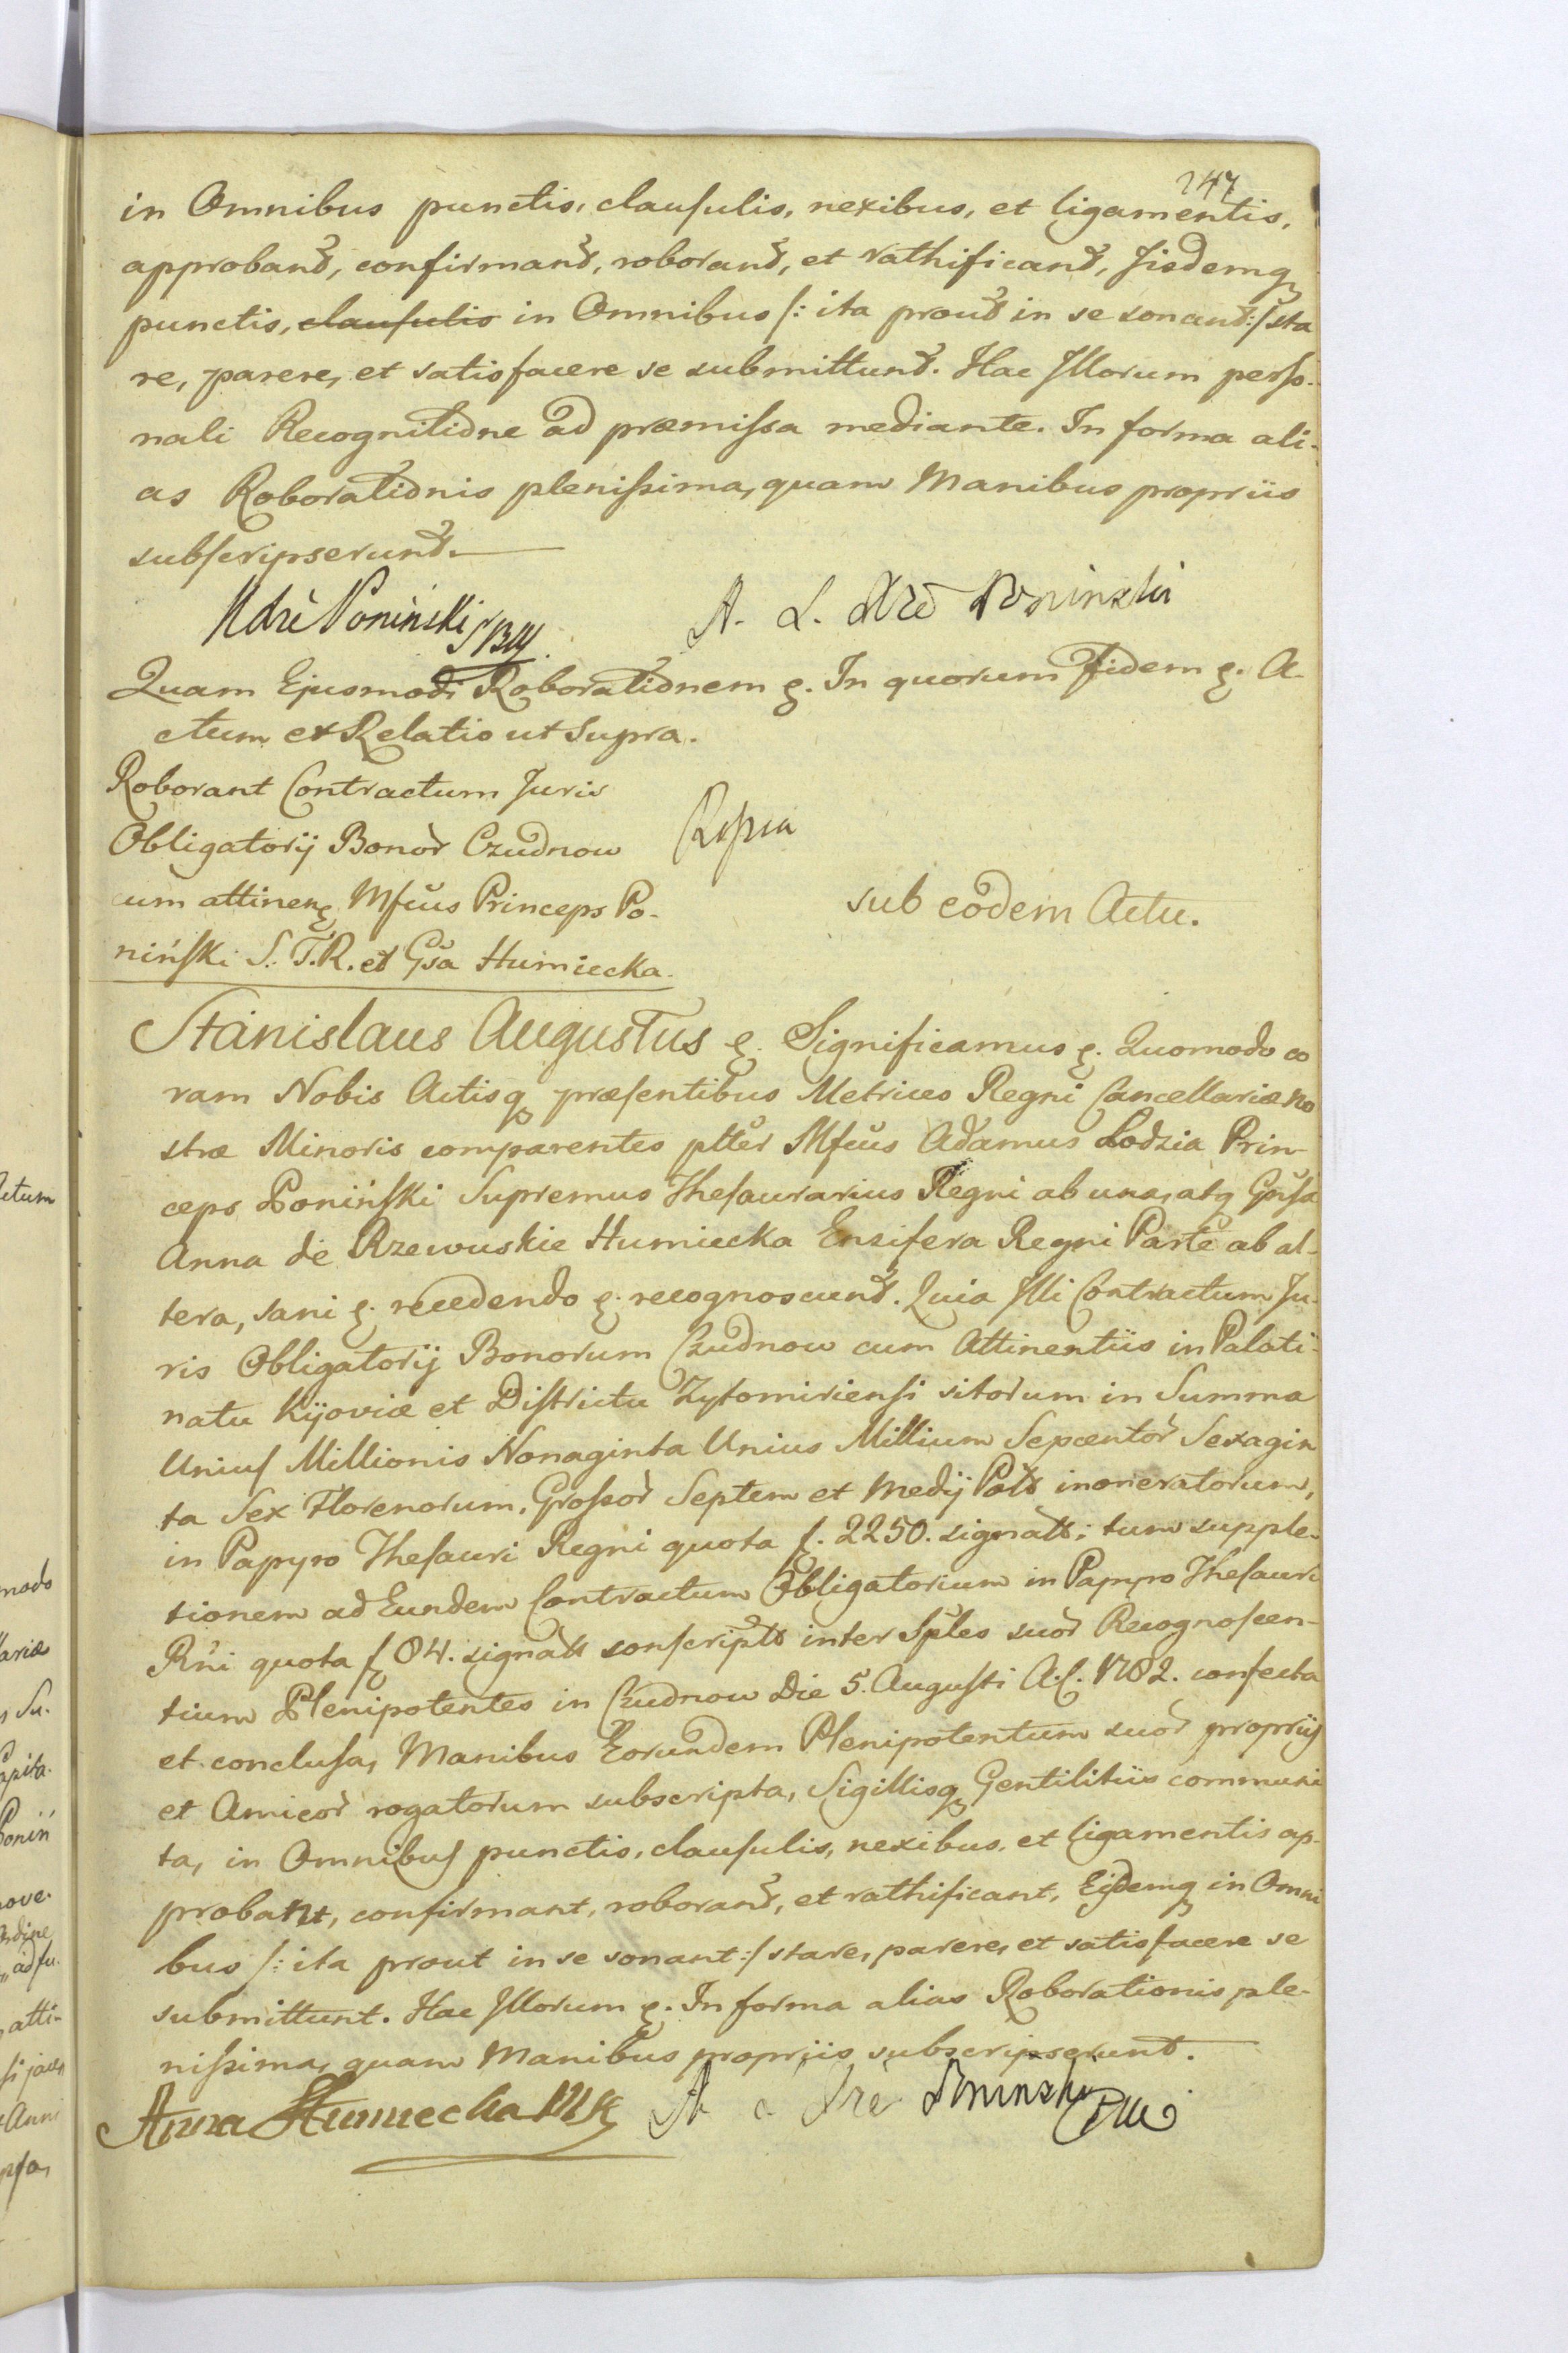 247
in Omnibus punctis, clausulis, nexibus, et ligamentis,
approband, confirmand, roborand, et rathificand, Jisdemq
punctis, clausulis in Omnibus /: ita proud in se sonand :/ sta
re, parere, et satisfacere se submittund. Hac Jllorum perso-
nali Recognitione ad præmissa mediante. In forma ali-
as Roborationis plenissima, quam Manibus propriis
subscripserund.
Xdzè Poniński A. L. Xże Poninski
Quam Ejusmodi Roborationem ę. In quorum Fidem ę. A-
ctum et Relatio ut Supra.
Roborant Contractum Juris
Obligatorij Bonor Czudnow
cum attinen Mfcus Princeps Po-
niński S. T. R. et Gsa Humiecka.
sub eodem Actu.
Stanislaus Augustus ę. Significamus ę. Quomodo co
ram Nobis Actisq præsentibus Metrices Regni Cancellariæ no
stræ Minoris comparentes ptter Mfcus Adamus Lodzia Prin-
ceps Poniński Supremus Thesaurarius Regni ab una, atq Gnsa
Anna de Rzewuskie Humiecka Ensifera Regni Parte ab al-
tera, sani ę. recedendo ę. recognoscund. Quia Jlli Contractum Ju-
ris Obligatorij Bonorum Czudnow cum Attinentiis in Palati-
natu Kijoviæ et Districtu Zytomiriensi sitorum in Summa
Unius Millionis Nonaginta Unius Millium Sepcentor Sexagin
ta Sex Florenorum, Grossor Septem et Medij Pols inoneratorum,
in Papyro Thesauri Regni quota f. 2250. signatt; tum supple-
tionem ad Eundem Contractum Obligatorium in Papyro Thesauri
Rni quota f 84. signatt conscriptt inter Sples suor Recognoscen-
tium Plenipotentes in Czudnow Die 5. Augusti A. C. 1782. confecta
et conclusa, Manibus Eorundem Plenipotentum suor propriis
et Amicor rogatorum subscripta, Sigillisq Gentilitiis communi
ta, in Omnibus punctis, clausulis, nexibus, et ligamentis ap-
probant, confirmant, roborand, et rathificant, Eisdemq in Omni
bus /: ita prout in se sonant :/ stare, parere, et satisfacere se
submittunt. Hac Jllorum ę. In forma alias Roborationis ple-
nissima, quam Manibus propriis subscripserunt.
Anna Humiecka A Xże Poninski